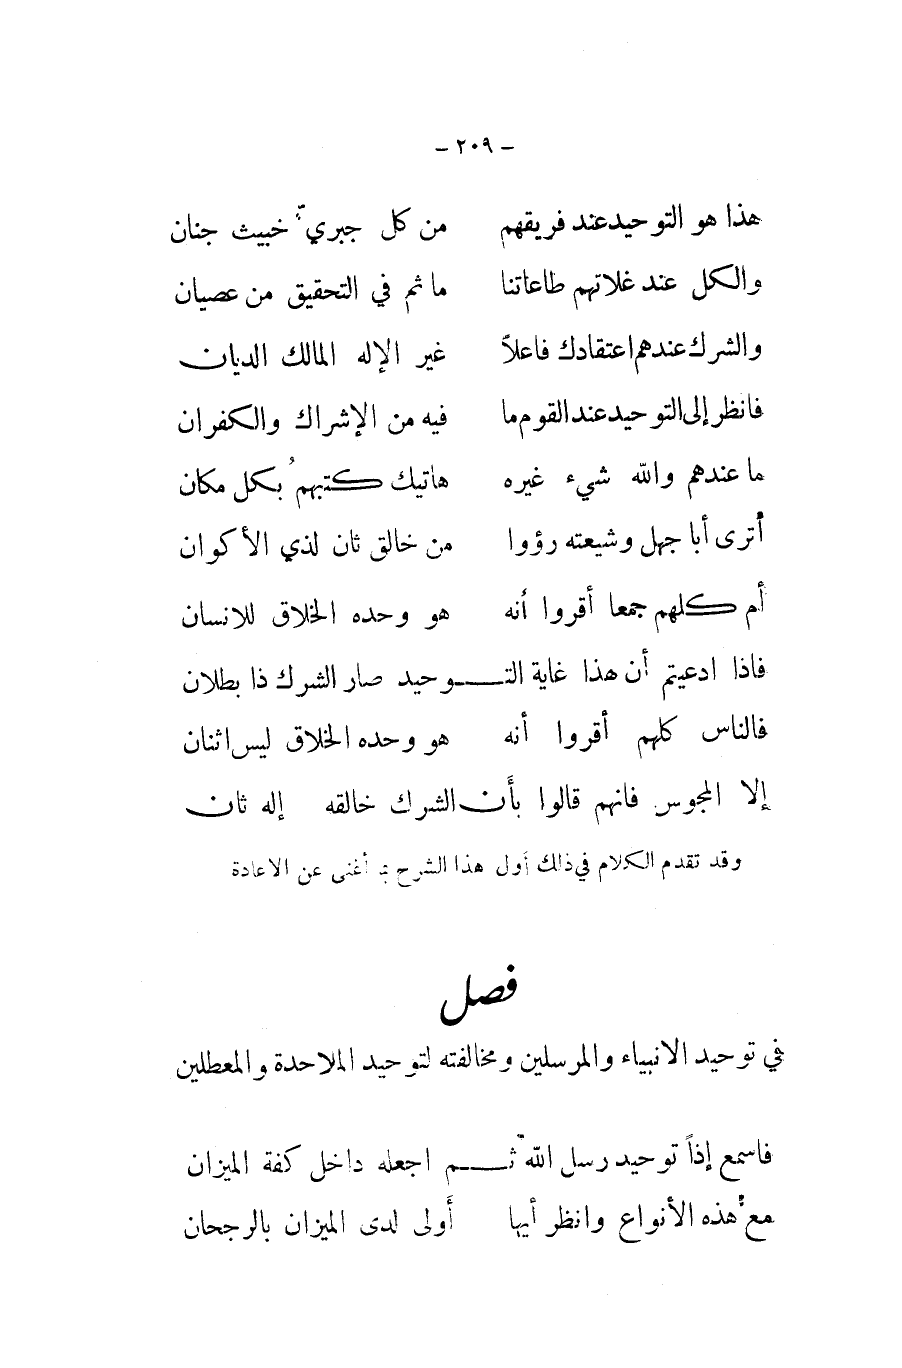 – ٢٠٩ –
هذا هو التوحيد عند فريقهم من كل جبريّ خبيث جنان
والكل عند غلاتهم طاعاتنا ما ثم في التحقيق من عصيان
والشرك عندهم اعتقادك فاعلاً غير الإله المالك الديان
فانظر إلى التوحيد عند القوم ما فيه من الإشراك والكفران
ما عندهم والله شيء غيره هاتيك كتبهمُ بكل مكان
أترى أبا جهل وشيعته رؤوا من خالق ثان لذي الأكوان
أم كلهم جمعا أقروا أنه هو وحده الخلاق للانسان
فاذا ادعيتم أن هذا غاية التـــوحيد صار الشرك ذا بطلان
فالناس كلهم أقروا أنه هو وحده الخلاق ليس اثنان
إلا المجوس فانهم قالوا بأن الشرك خالقه إله ثان
وقد تقدم الكلام في ذلك أول هذا الشرح بما أغنى عن الاعادة
فصل
في توحيد الانبياء والمرسلين ومخالفته لتوحيد الملاحدة والمعطلين
فاسمع إذاً توحيد رسل الله ثـــم اجعله داخل كفة الميزان
مع هذه الأنواع وانظر أيها أولى لدى الميزان بالرجحان